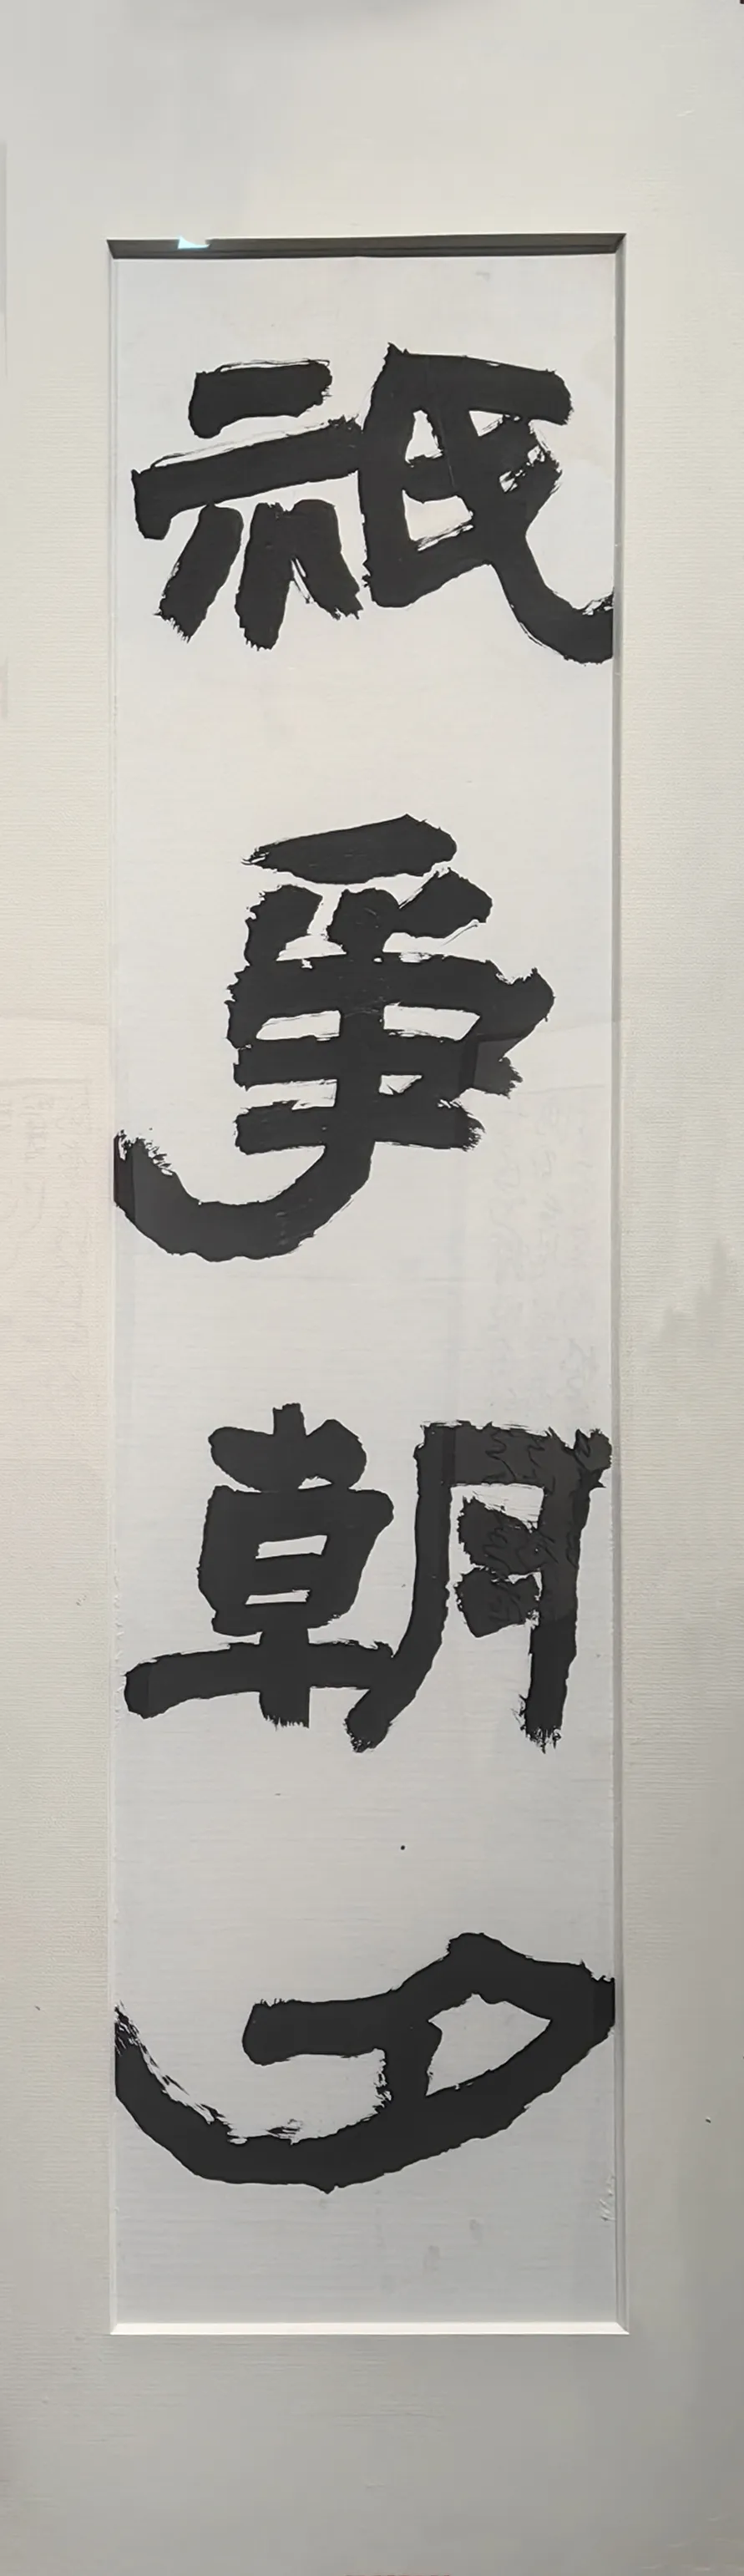 祇爭朝夕